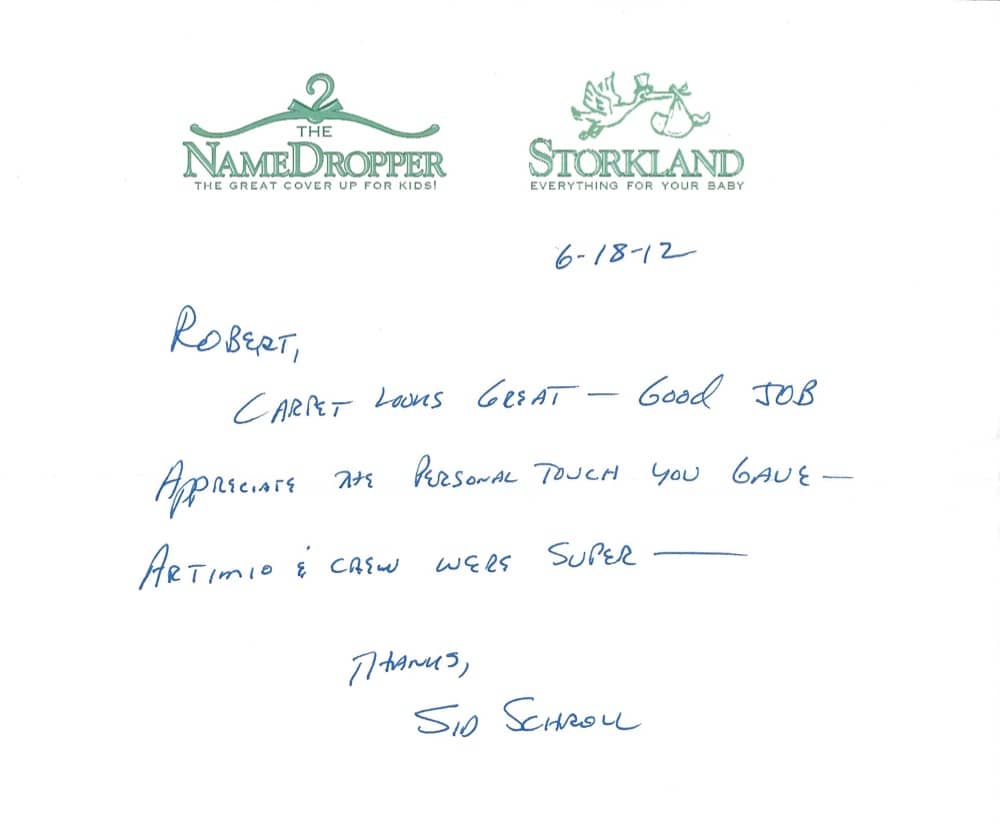 THE
NAMEDROPPER
THE GREAT COVER UP FOR KIDS!
STORKLAND
EVERYTHING FOR YOUR BABY
6-18-12
ROBERT,
CARPET LOOKS GREAT — GOOD JOB
APPRECIATE THE PERSONAL TOUCH YOU GAVE —
ARTIMIO & CREW WERE SUPER —
THANKS,
SID SCHROLL